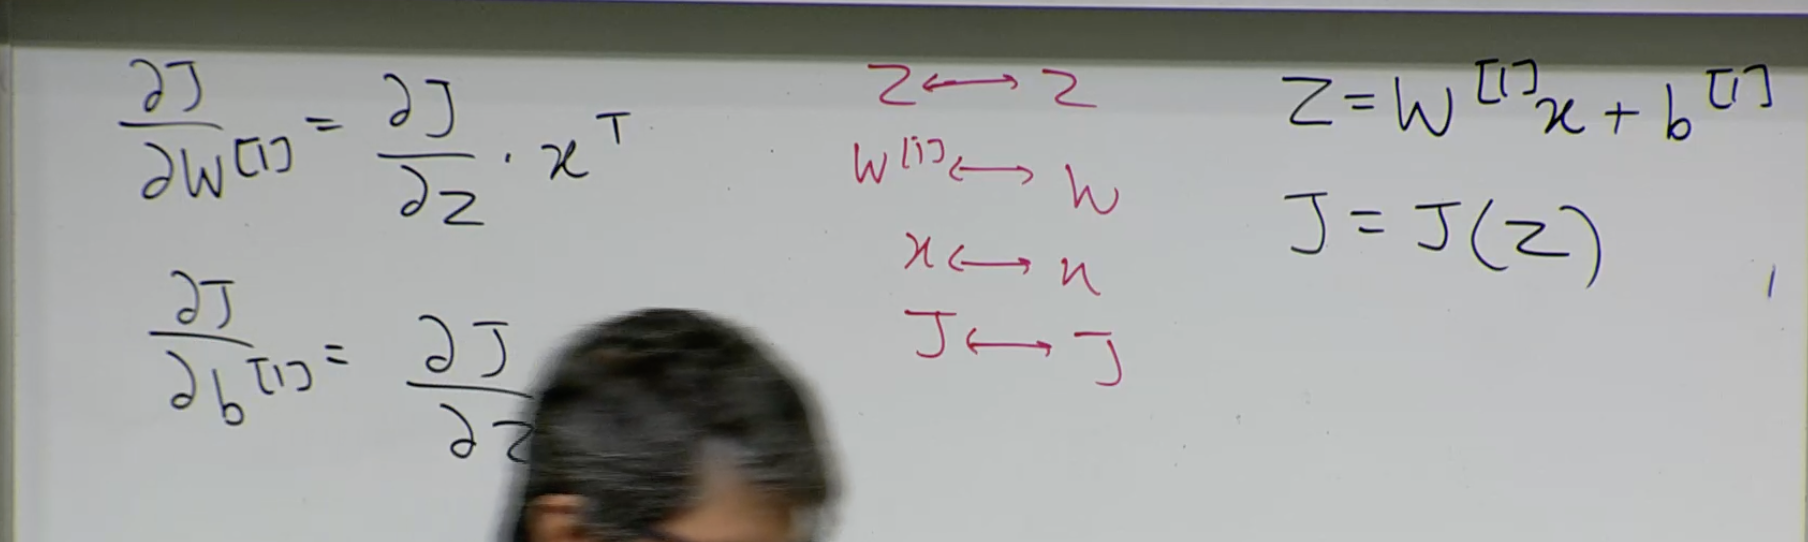 ∂J/∂W^[1] = ∂J/∂z · x^T
∂J/∂b^[1] = ∂J/∂z
z ↔ z
W^[1] ↔ W
x ↔ u
J ↔ J
z = W^[1]x + b^[1]
J = J(z)